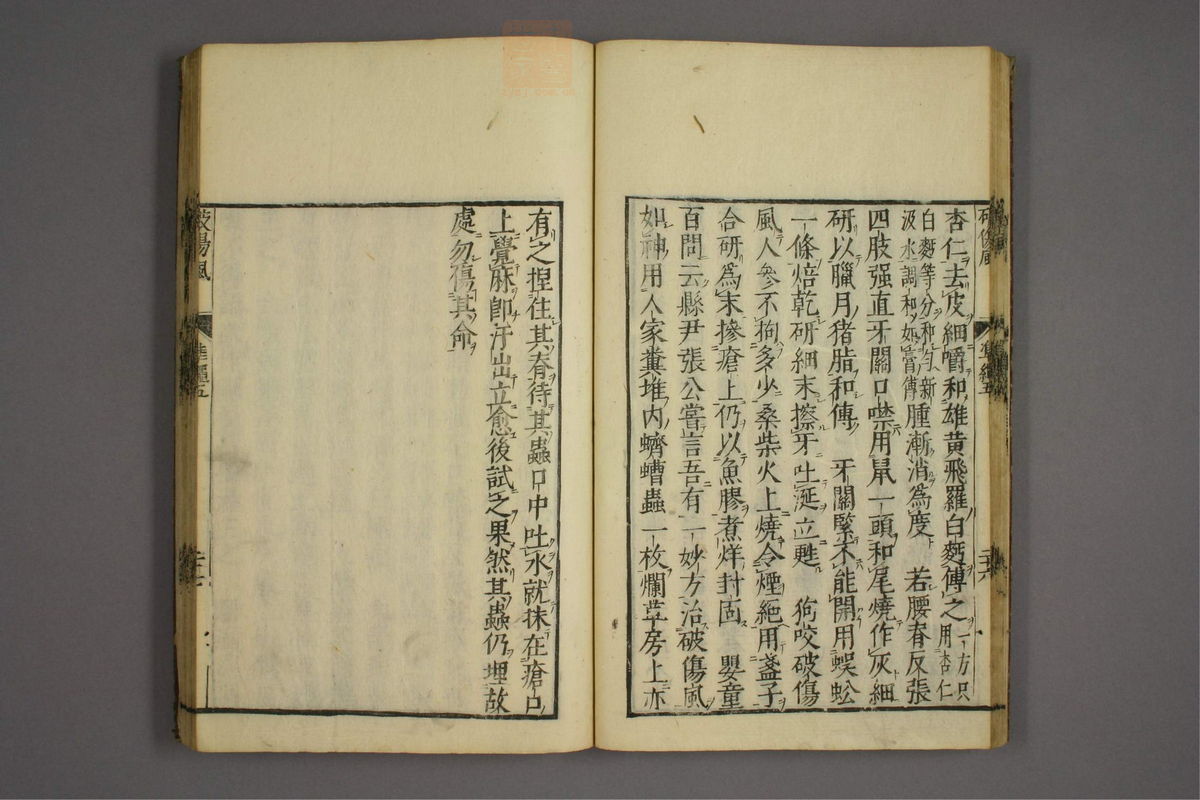 杏仁去皮細嚼和雄黃飛羅白麪傅之一方只用杏仁
白麪等分和勻新汲水調和如膏傅腫漸消爲度　若腰脊反張
四肢强直牙關口噤用鼠一頭和尾燒作灰細
研以臘月猪脂和傅　牙關緊不能開用蜈蚣
一條焙乾研細末擦牙吐涎立甦　狗咬破傷
風人參不拘多少桑柴火上燒令煙絶用盞子
合研爲末摻瘡上仍以魚膠煮烊封固　嬰童
百問云縣尹張公嘗言吾有一妙方治破傷風
如神用人家糞堆內蠐螬蟲一枚爛草房上亦
破傷風
準繩五
二十六
有之捏住其脊待其蟲口中吐水就抹在瘡口
上覺麻卽汗出立愈後試之果然其蟲仍埋故
處勿傷其命
破傷風
準繩五
二十七